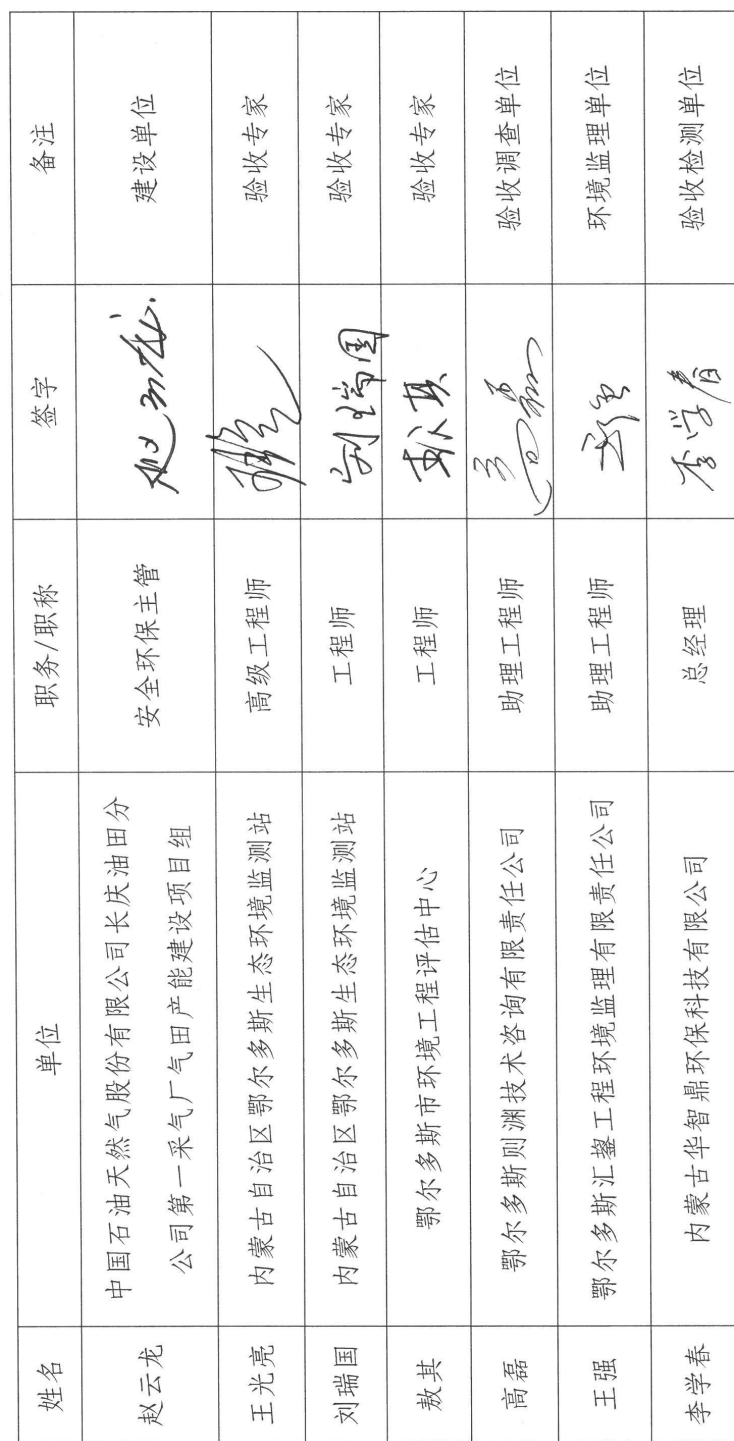 姓名 单位 职务/职称 签字 备注
赵云龙 中国石油天然气股份有限公司长庆油田分 安全环保主管 赵云龙 建设单位
公司第一采气厂气田产能建设项目组
王光亮 内蒙古自治区鄂尔多斯生态环境监测站 高级工程师 验收专家
刘瑞国 内蒙古自治区鄂尔多斯生态环境监测站 工程师 刘瑞国 验收专家
敖其 鄂尔多斯市环境工程评估中心 工程师 敖其 验收专家
高磊 鄂尔多斯则渊技术咨询有限责任公司 助理工程师 验收调查单位
王强 鄂尔多斯汇鋆工程环境监理有限责任公司 助理工程师 环境监理单位
李学春 内蒙古华智鼎环保科技有限公司 总经理 李学春 验收检测单位